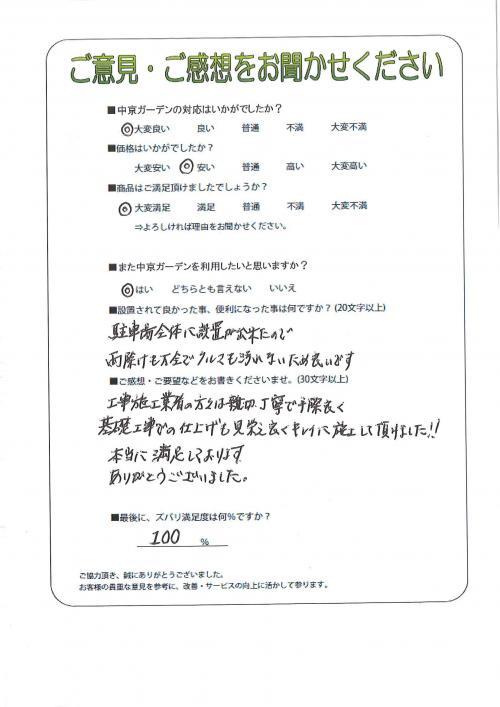 ご意見・ご感想をお聞かせください
■中京ガーデンの対応はいかがでしたか？
◎大変良い 良い 普通 不満 大変不満
■価格はいかがでしたか？
大変安い ◎安い 普通 高い 大変高い
■商品はご満足頂けましたでしょうか？
◎大変満足 満足 普通 不満 大変不満
⇒よろしければ理由をお聞かせください。
■また中京ガーデンを利用したいと思いますか？
◎はい どちらとも言えない いいえ
■設置されて良かった事、便利になった事は何ですか？(20文字以上)
駐車場全体に設置が出来たので
雨除けも万全でクルマも汚れないため良いです
■ご感想・ご要望などをお書きくださいませ。(30文字以上)
工事施工業者の方々は親切、丁寧で手際良く
基礎工事での仕上げも見栄え良くキレイに施工して頂けました!!
本当に満足しております
ありがとうございました。
■最後に、ズバリ満足度は何％ですか？
100 ％
ご協力頂き、誠にありがとうございました。
お客様の貴重な意見を参考に、改善・サービスの向上に活かして参ります。